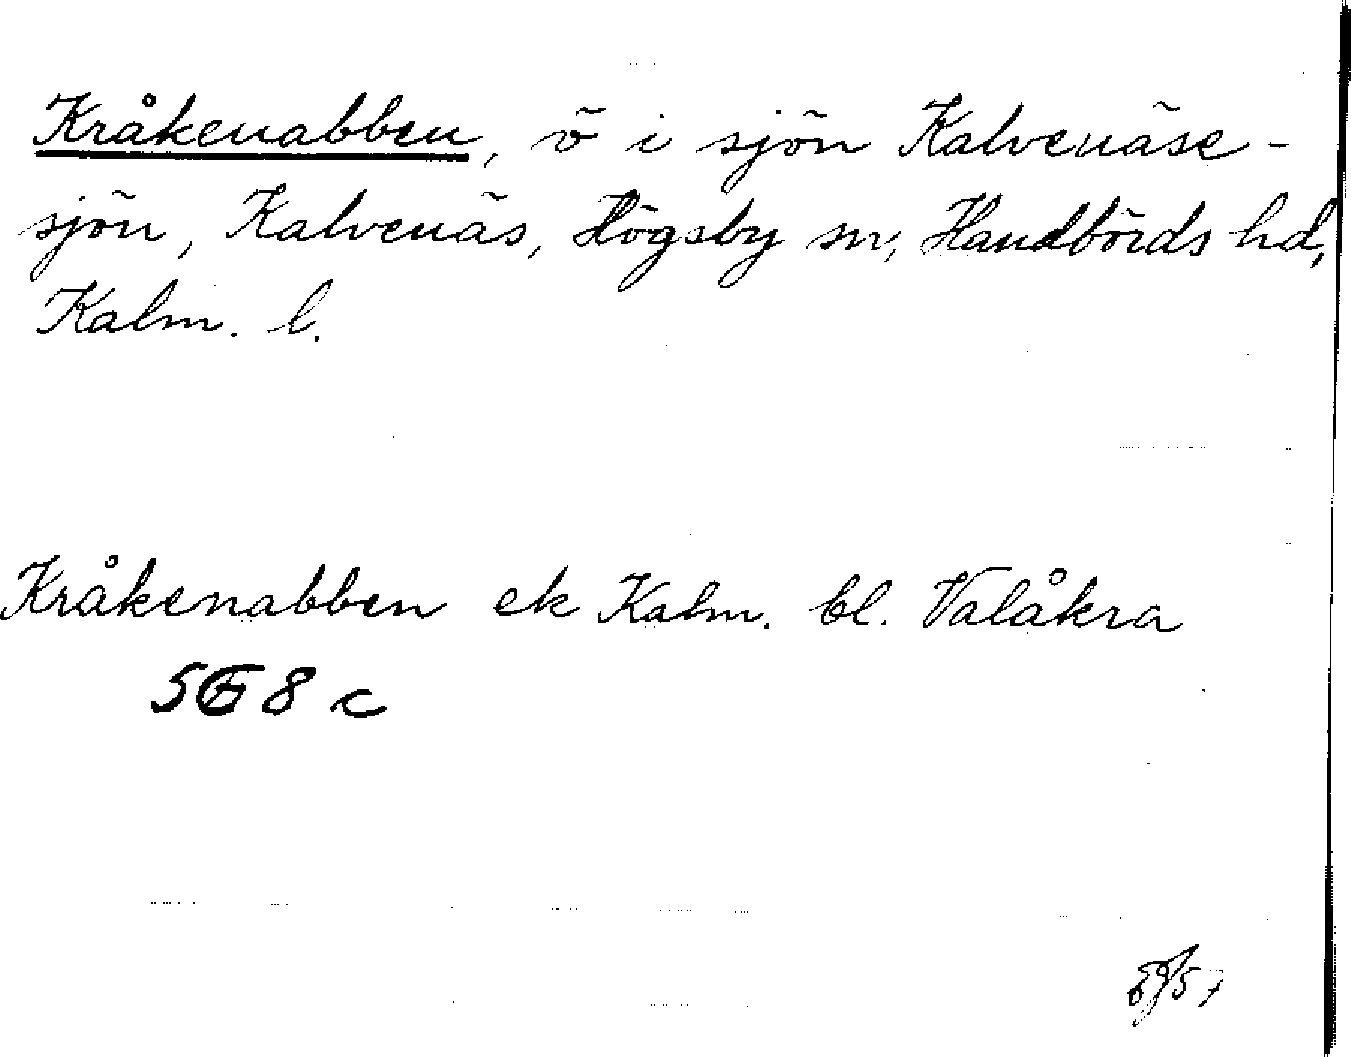 Kråkenabben, ö i sjön Kalvenäse-
sjön, Kalvenäs, Högsby sn, Handbörds hd,
Kalm. l.
Kråkenabben ek Kalm. bl. Valåkra
5G 8 c